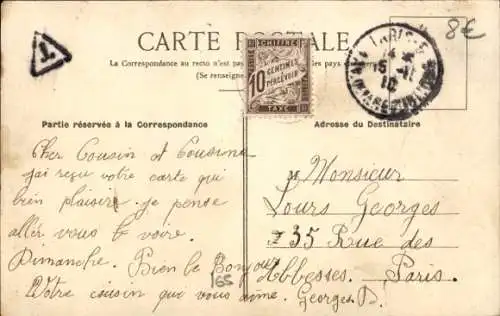 8€
CARTE POSTALE
T
La Correspondance au recto n'est pas les pays
(Se renseigne
CHIFFRE
10 CENTIMES
À PERCEVOIR
TAXE
PARIS
15
12
Partie réservée à la Correspondance
Adresse du Destinataire
Cher Cousin et Cousine
j'ai reçu votre carte qui
bien plaisire. je pense
aller vous le voire.
Dimanche. Bien le Bonjour
Votre cousin qui vous aime. Georges D.
165
Monsieur
Lours Georges
35 Rue des
Abbesses. Paris.